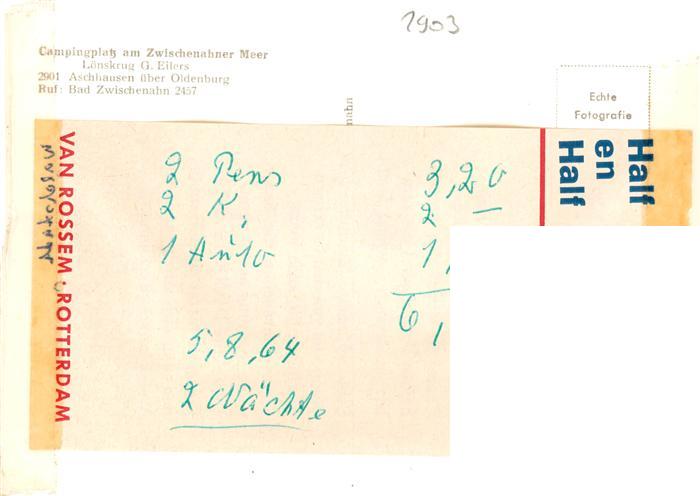 1903
Campingplatz am Zwischenahner Meer
Lönskrug G. Eilers
2901 Aschhausen über Oldenburg
Ruf: Bad Zwischenahn 2457
Echte
Fotografie
VAN ROSSEM · ROTTERDAM
Half
en
Half
2 Pers 3,20
2 K, 2 —
1 Auto 1,
6,
5,8,64
2 Nächte